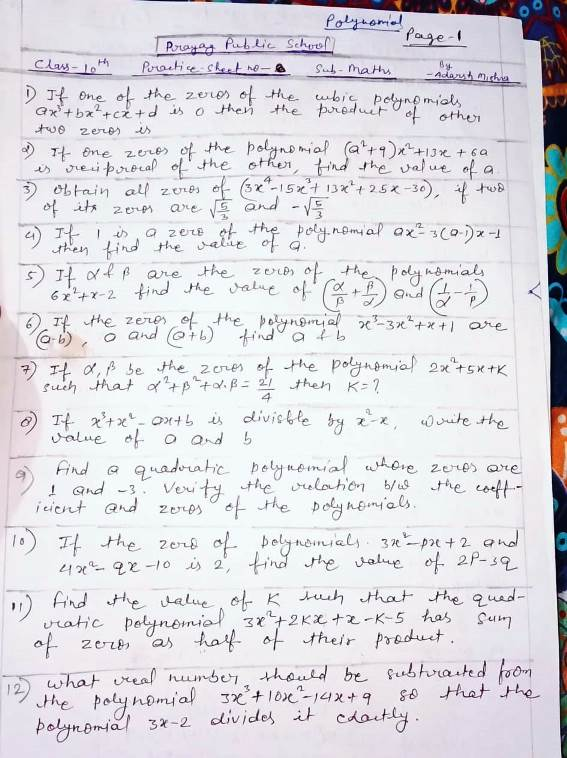 Polynomial
Page-1
Prayag Public School
Class-10th Practice-Sheet no- Sub-Maths By
-Adarsh Mishra
1) If one of the zeros of the cubic polynomials
ax³+bx²+cx+d is 0 then the product of other
two zeros is
2) If one zeros of the polynomial (a²+9)x²+13x+6a
is reciprocal of the other, find the value of a.
3) obtain all zeros of (3x⁴-15x³+13x²+25x-30), if two
of its zeros are √5/3 and -√5/3
4) If 1 is a zero of the polynomial ax²-3(a-1)x-1
then find the value of a.
5) If α & β are the zeros of the polynomials
6x²+x-2 find the value of (α/β + β/α) and (1/α - 1/β)
6) If the zeros of the polynomial x³-3x²+x+1 are
(a-b), a and (a+b) find a & b
7) If α, β be the zeros of the polynomial 2x²+5x+K
such that α²+β²+α.β = 21/4 then K=?
8) If x³+x²-ax+b is divisible by x²-x, write the
value of a and b
9) find a quadratic polynomial whose zeros are
1 and -3. Verify the relation b/w the coeff-
icient and zeros of the polynomials.
10) If the zero of polynomials 3x²-px+2 and
4x²-qx-10 is 2, find the value of 2P-3q
11) find the value of K such that the quad-
ratic polynomial 3x²+2Kx+x-K-5 has sum
of zeros as half of their product.
12) what real number should be subtracted from
the polynomial 3x³+10x²-14x+9 so that the
polynomial 3x-2 divides it exactly.